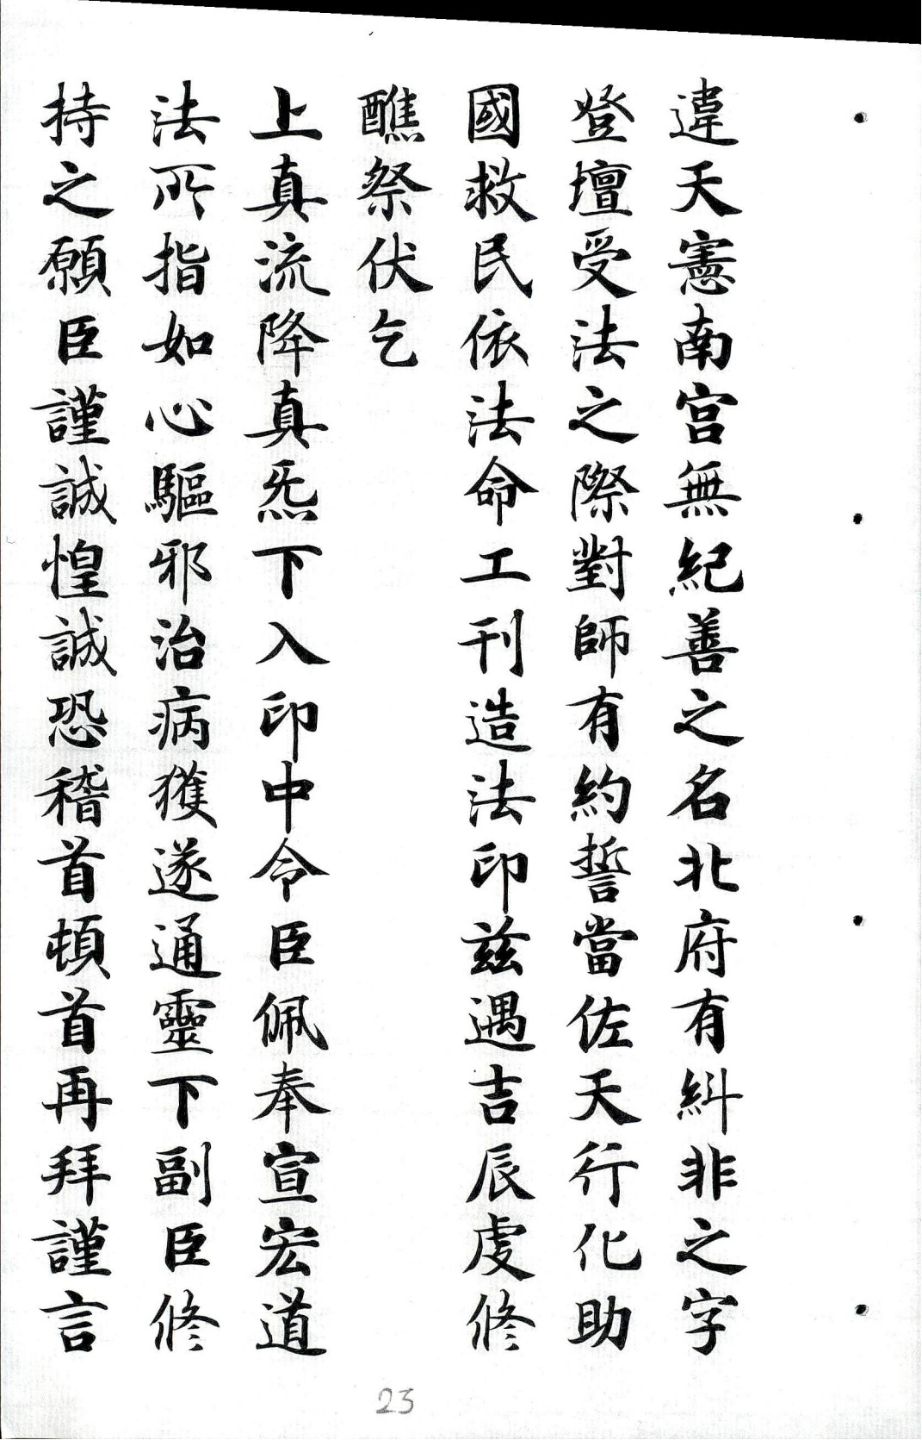 違天憲南宮無紀善之名北府有糾非之字
登壇受法之際對師有約誓當佐天行化助
國救民依法命工刊造法印茲遇吉辰虔修
醮祭伏乞
上真流降真炁下入印中令臣佩奉宣宏道
法所指如心驅邪治病獲遂通靈下副臣修
持之願臣謹誠惶誠恐稽首頓首再拜謹言
23